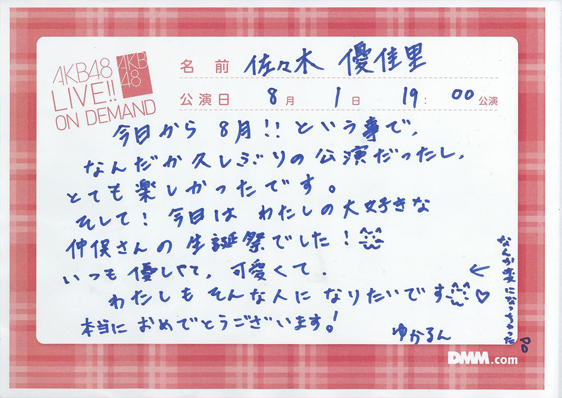 AKB48
LIVE!!
ON DEMAND
AKB
48
名前 佐々木 優佳里
公演日 8月 1日 19:00公演
今日から8月!!という事で、
なんだか久しぶりの公演だったし、
とても楽しかったです。
そして!今日はわたしの大好きな
仲俣さんの生誕祭でした!
いつも優しくて、可愛くて、
わたしもそんな人になりたいです♡
←なんか変になっちゃった
本当におめでとうございます!
ゆかるん
DMM.com